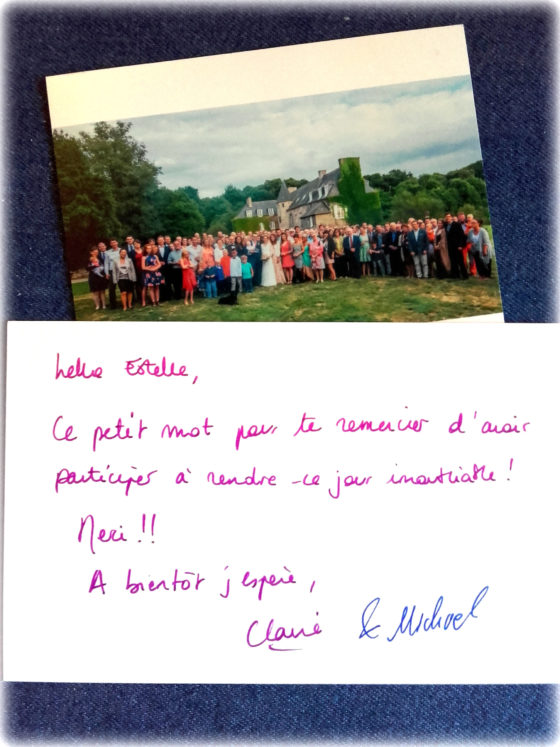 Hello Estelle,
Ce petit mot pour te remercier d'avoir
participer à rendre ce jour inoubliable !
Merci !!
A bientôt j'espère,
Claire & Michael